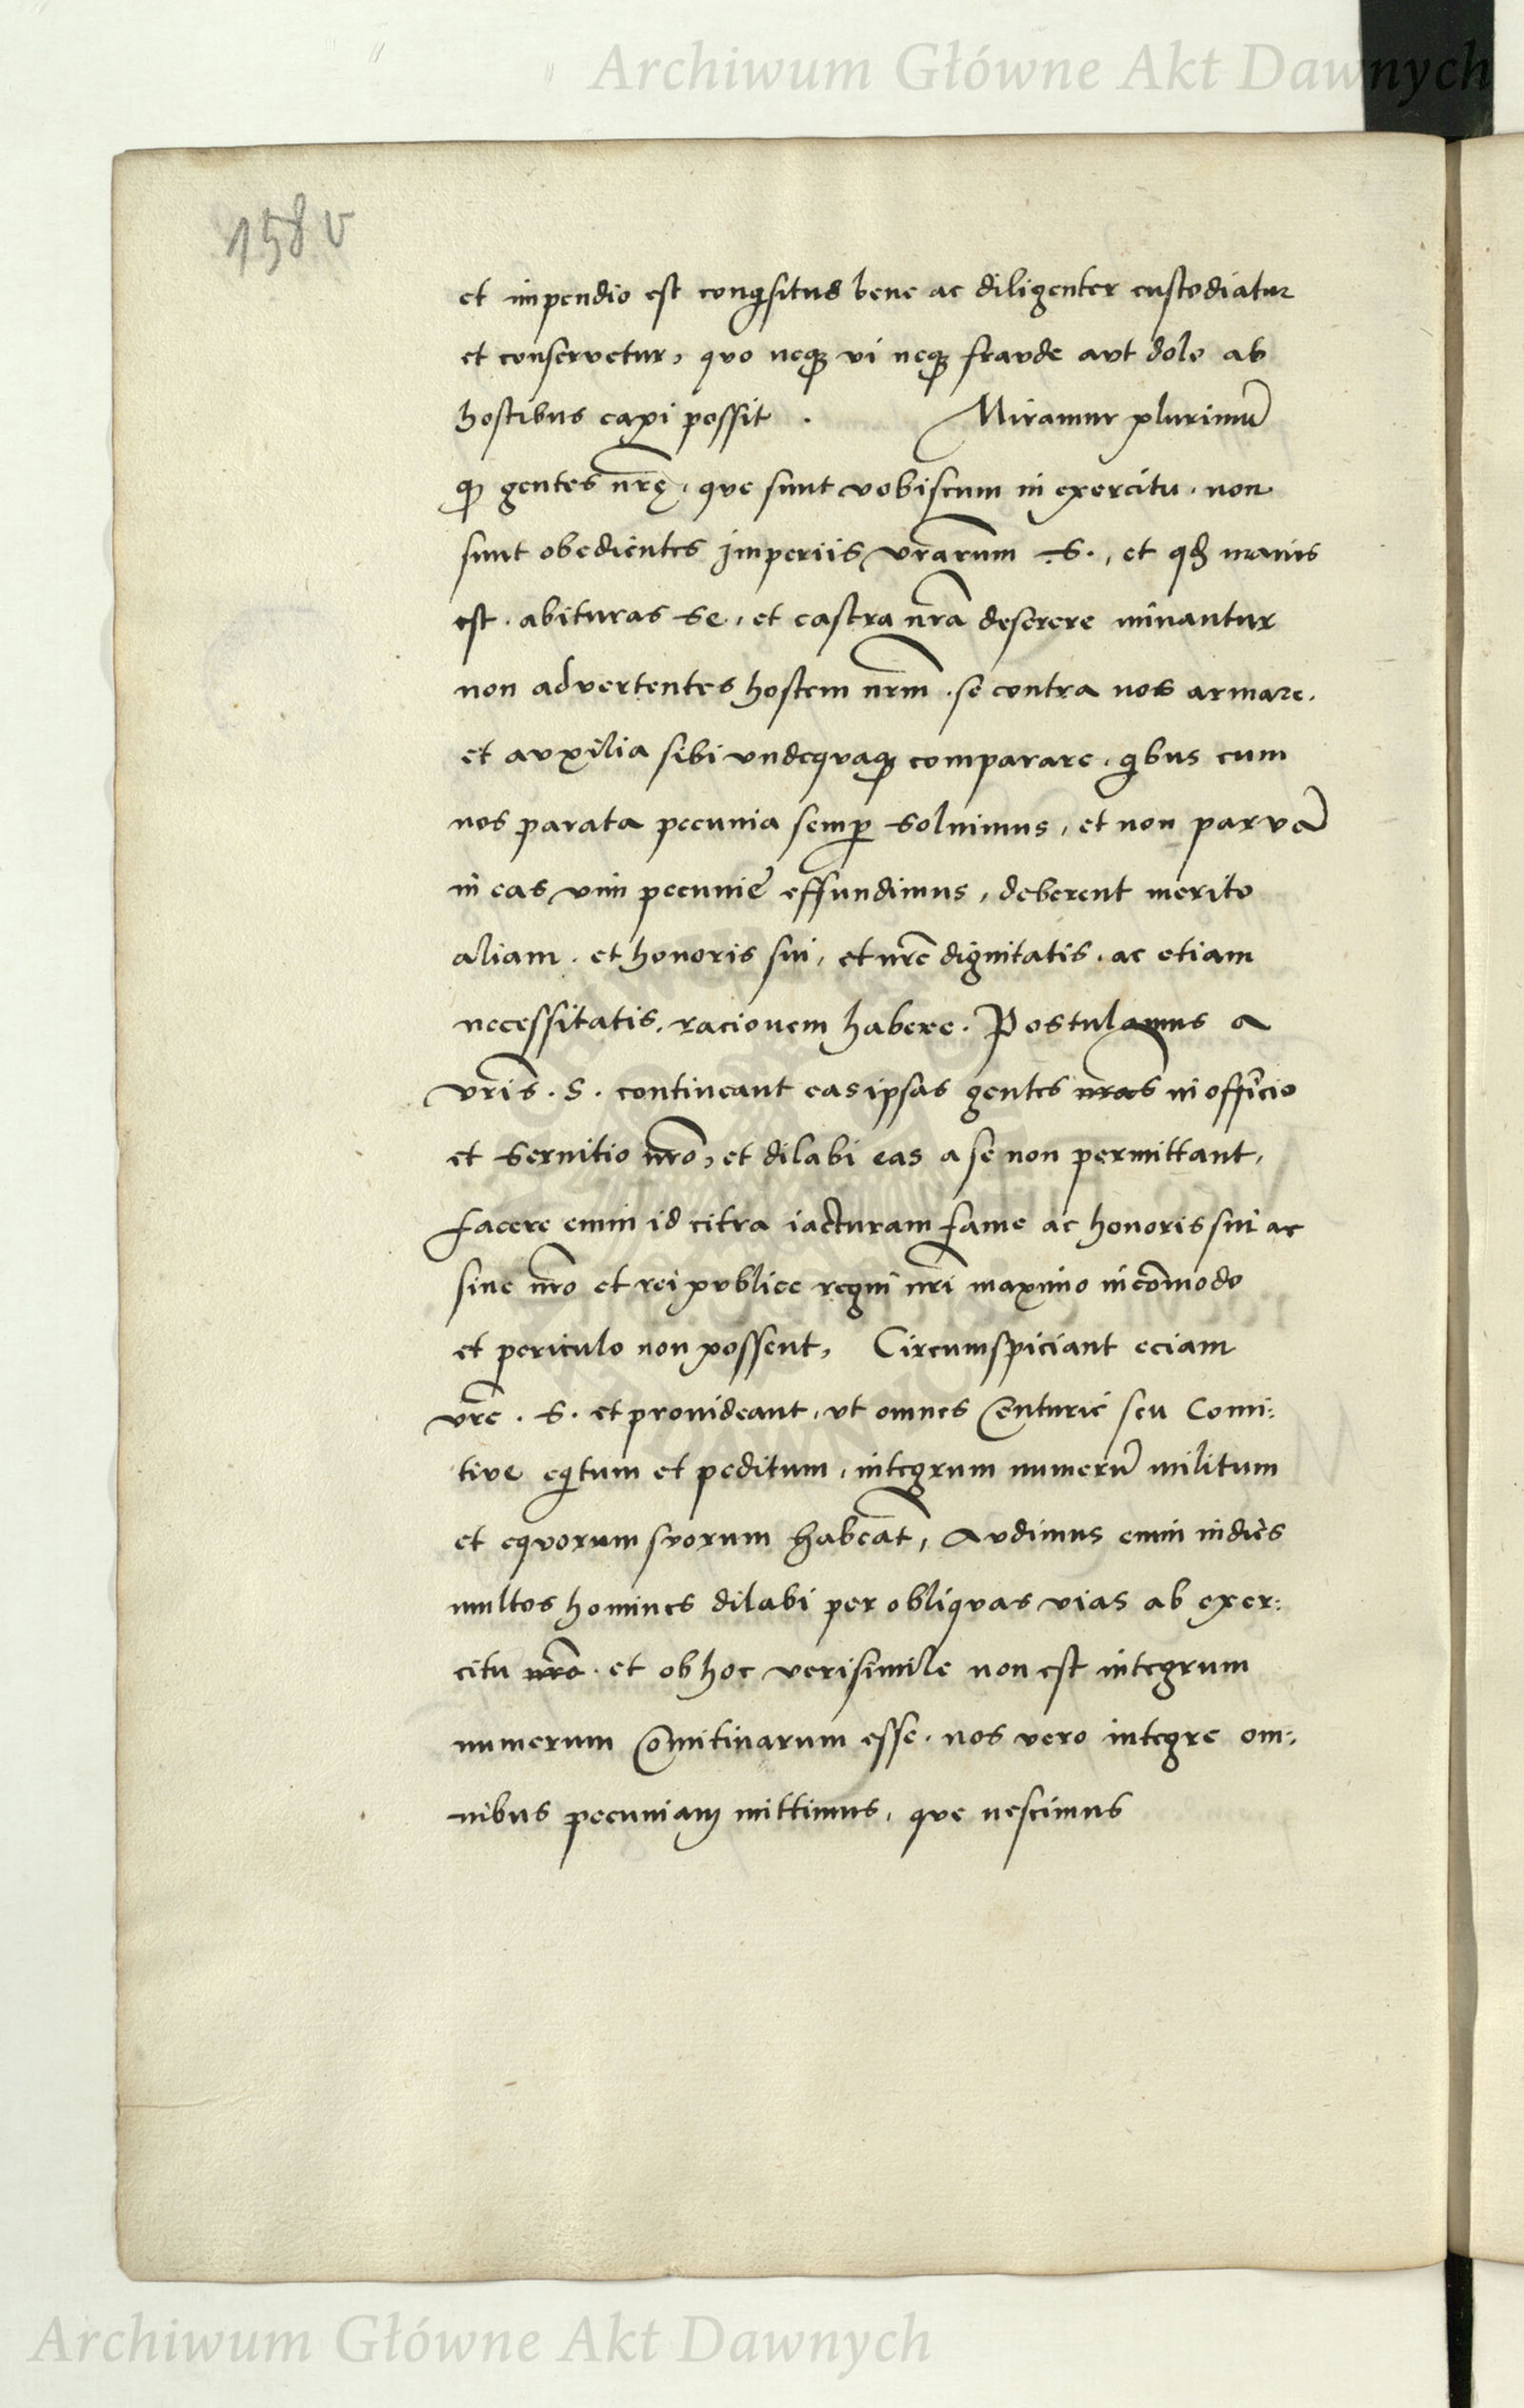 Archiwum Główne Akt Dawnych
158 v
et impendio est conqsitus bene ac diligenter custodiatur
et conservetur, quo neqꝫ vi neqꝫ fravde avt dolo ab
hostibus capi possit . Miramur plurimū
qꝫ gentes nrę, que sunt vobiscum in exercitu, non
sunt obedientes imperiis vrarum .S., et qd maius
est, abituras se, et castra nra deserere minantur
non advertentes hostem nrm, se contra nos armare,
et avxilia sibi vndequaqꝫ comparare, qbus cum
nos parata pecunia semp solvimus, et non parvā
in eas vim pecunie effundimus, deberent merito
aliam, et honoris sui, et nre dignitatis, ac etiam
necessitatis, racionem habere. Postulamus a
vris .S. contineant eas ipsas gentes nras in officio
et servitio nro, et dilabi eas a se non permittant,
facere enim id citra iacturam fame ac honoris sui ac
sine nro et rei publice regni nri maximo incōmodo
et periculo non possent, Circumspiciant eciam
vre .S. et provideant, vt omnes Centurie seu Comi:
tive eqtum et peditum, integrum numerū militum
et equorum suorum habeāt, Audimus enim indies
multos homines dilabi per obliquas vias ab exer:
citu nro, et ob hoc verisimile non est integrum
numerum Comitivarum esse, nos vero integre om:
nibus pecuniam mittimus, que nescimus
Archiwum Główne Akt Dawnych